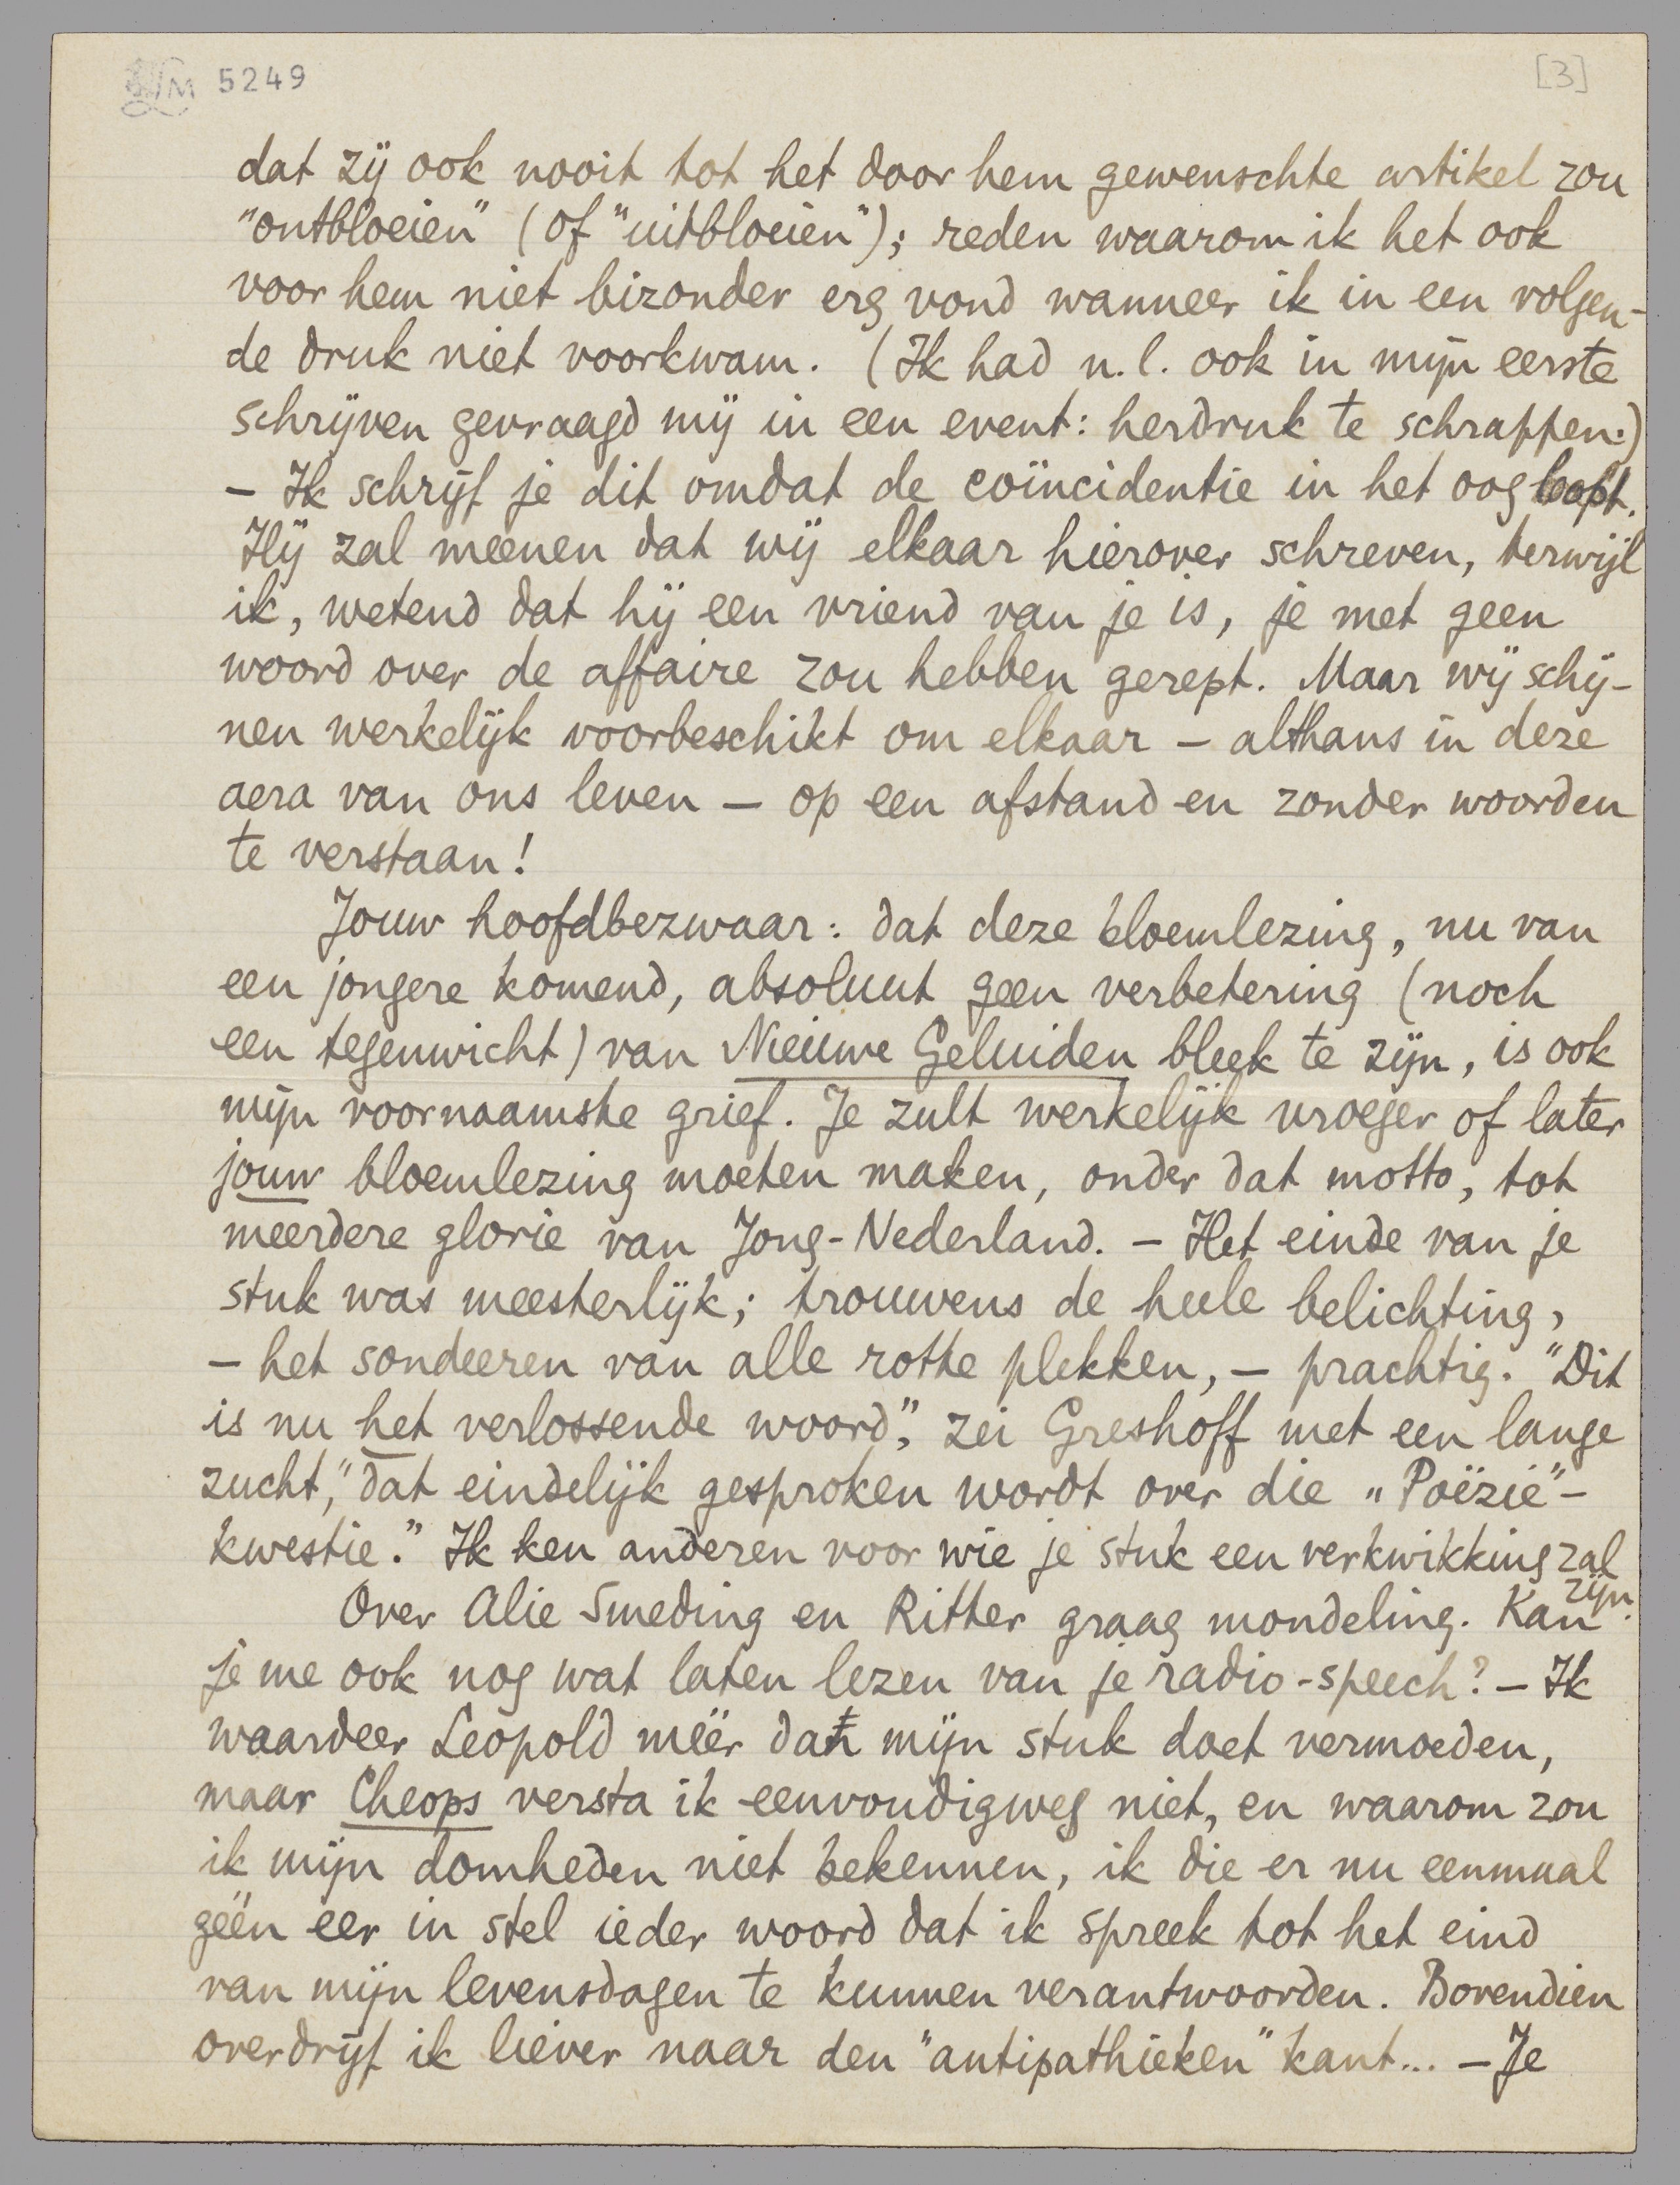 LM 5249
[3]
dat zij ook nooit tot het door hem gewenschte artikel zou
"ontbloeien" (of "uitbloeien"); reden waarom ik het ook
voor hem niet bizonder erg vond wanneer ik in een volgen-
de druk niet voorkwam. (Ik had n.l. ook in mijn eerste
schrijven gevraagd mij in een event: herdruk te schrappen.)
– Ik schrijf je dit omdat de coïncidentie in het oog loopt.
Hij zal meenen dat wij elkaar hierover schreven, terwijl
ik, wetend dat hij een vriend van je is, je met geen
woord over de affaire zou hebben gerept. Maar wij schij-
nen werkelijk voorbeschikt om elkaar – althans in deze
aera van ons leven – op een afstand en zonder woorden
te verstaan!
Jouw hoofdbezwaar: dat deze bloemlezing, nu van
een jongere komend, absoluut geen verbetering (noch
een tegenwicht) van Nieuwe Geluiden bleek te zijn, is ook
mijn voornaamste grief. Je zult werkelijk vroeger of later
jouw bloemlezing moeten maken, onder dat motto, tot
meerdere glorie van Jong-Nederland. – Het einde van je
stuk was meesterlijk; trouwens de heele belichting,
– het sondeeren van alle rotte plekken, – prachtig. "Dit
is nu het verlossende woord", zei Greshoff met een lange
zucht, "dat eindelijk gesproken wordt over die „Poëzie"-
kwestie." Ik ken anderen voor wie je stuk een verkwikking zal
zijn.
Over Alie Smeding en Ritter graag mondeling. Kan
je me ook nog wat laten lezen van je radio-speech? – Ik
waardeer Leopold méér dan mijn stuk doet vermoeden,
maar Cheops versta ik eenvoudigweg niet, en waarom zou
ik mijn domheden niet bekennen, ik die er nu eenmaal
géén eer in stel ieder woord dat ik spreek tot het eind
van mijn levensdagen te kunnen verantwoorden. Bovendien
overdrijf ik liever naar den "antipathieken" kant... – Je